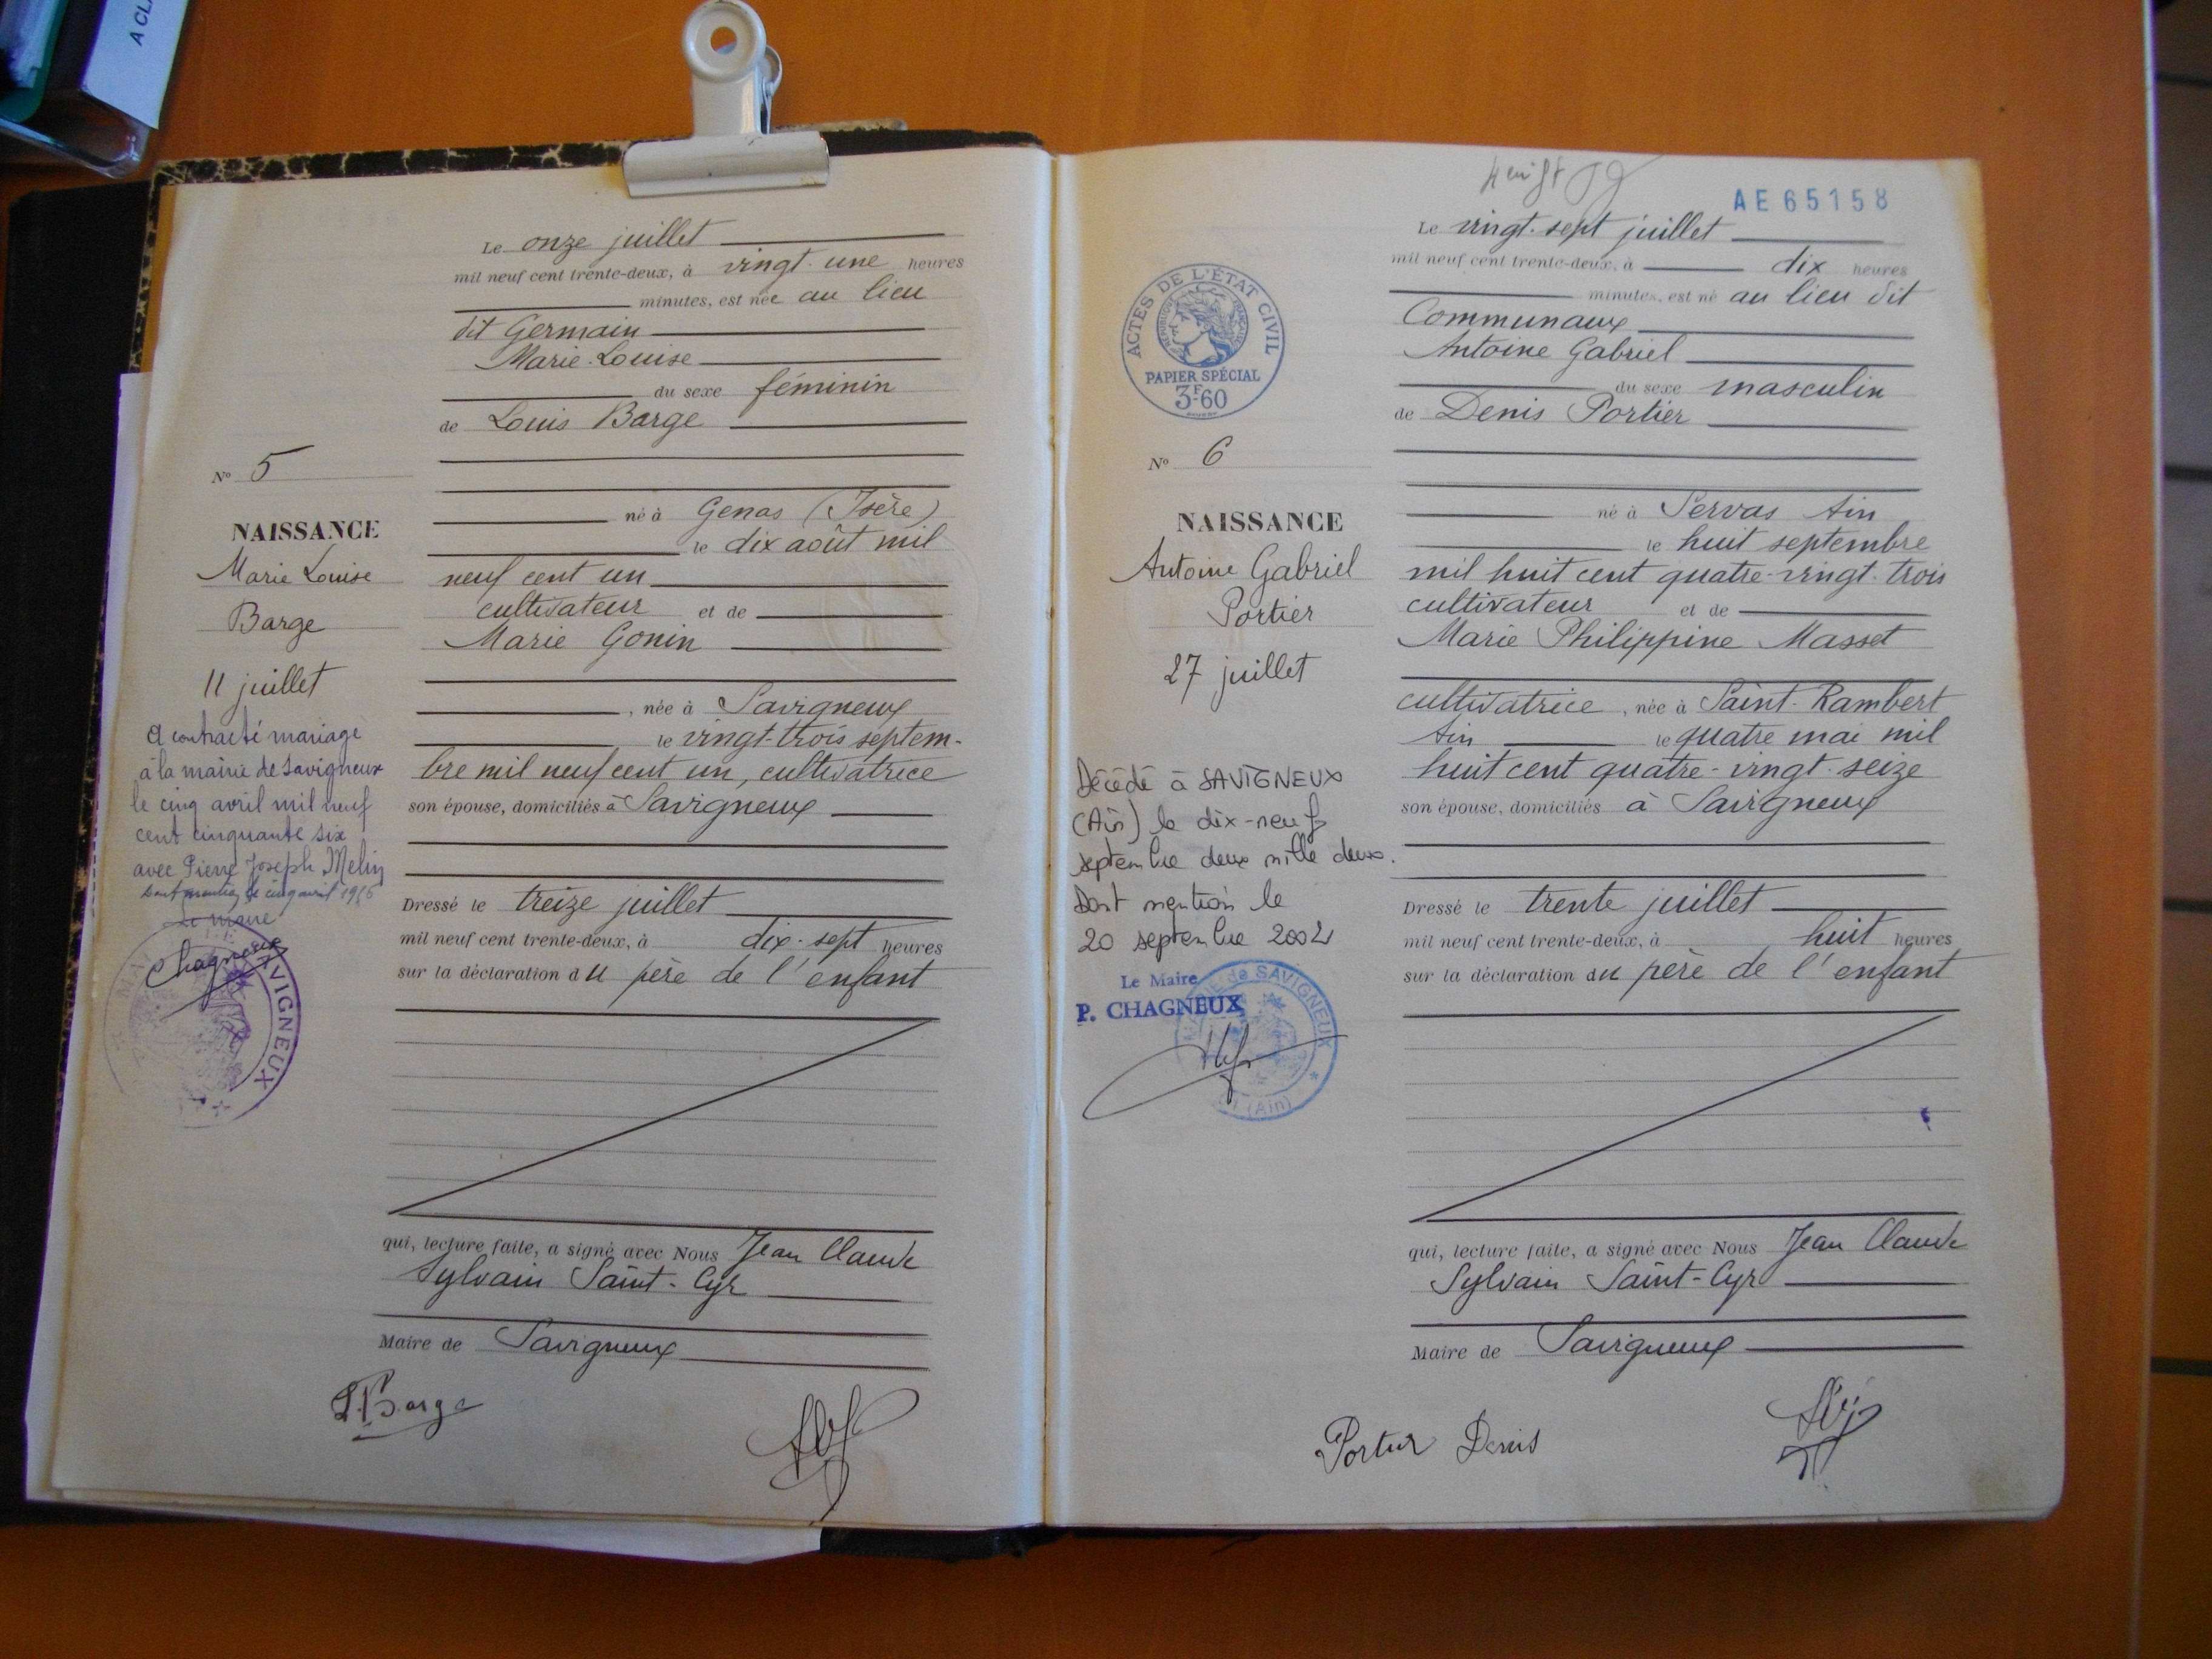 A CL
Le onze juillet
mil neuf cent trente-deux, à vingt-une heures
minutes, est née au lieu
dit Germain
Marie-Louise
du sexe féminin
de Louis Barge
N° 5
né à Genas (Isère)
le dix août mil
neuf cent un
cultivateur et de
Marie Gonin
, née à Savigneux
le vingt-trois septem-
bre mil neuf cent un, cultivatrice
son épouse, domiciliés à Savigneux
Dressé le treize juillet
mil neuf cent trente-deux, à dix-sept heures
sur la déclaration du père de l'enfant
qui, lecture faite, a signé avec Nous Jean Claude
Sylvain Saint-Cyr
Maire de Savigneux
L. Barge
NAISSANCE
Marie Louise
Barge
11 juillet
A contracté mariage
à la mairie de Savigneux
le cinq avril mil neuf
cent cinquante six
avec Pierre Joseph Melin
Dont mention le cinq avril 1956
Le Maire
Chagneux
SAVIGNEUX
AE65158
Le vingt-sept juillet
mil neuf cent trente-deux, à dix heures
minutes, est né au lieu dit
Communaux
Antoine Gabriel
du sexe masculin
de Denis Portier
ACTES DE L'ÉTAT CIVIL
RÉPUBLIQUE FRANÇAISE
PAPIER SPÉCIAL
3F60
N° 6
né à Servas Ain
le huit septembre
mil huit cent quatre-vingt-trois
cultivateur et de
Marie Philippine Masset
cultivatrice, née à Saint-Rambert
Ain le quatre mai mil
huit cent quatre-vingt-seize
son épouse, domiciliés à Savigneux
Dressé le trente juillet
mil neuf cent trente-deux, à huit heures
sur la déclaration du père de l'enfant
qui, lecture faite, a signé avec Nous Jean Claude
Sylvain Saint-Cyr
Maire de Savigneux
Portier Denis
NAISSANCE
Antoine Gabriel
Portier
27 juillet
Décédé à SAVIGNEUX
(Ain) le dix-neuf
septembre deux mille deux.
Dont mention le
20 septembre 2002
Le Maire
P. CHAGNEUX
MAIRIE de SAVIGNEUX
(Ain)